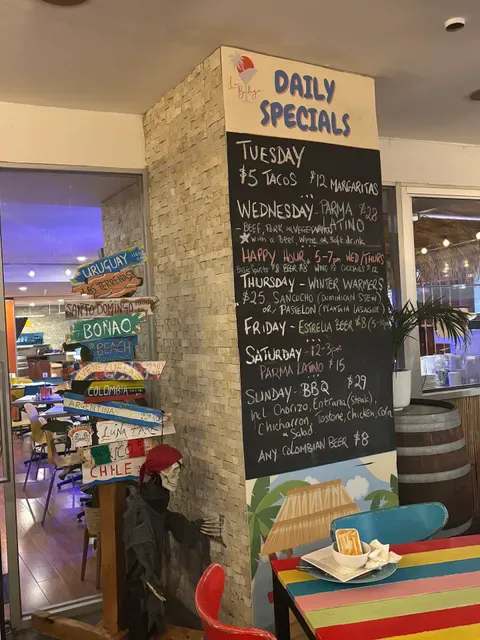 DAILY
SPECIALS
TUESDAY
$5 TACOS $12 MARGARITAS
WEDNESDAY - PARMA $28
LATINO
- BEEF, PORK or VEGETARIAN
* with a Beer, Wine or Soft drink
HAPPY HOUR, 5-7pm WED/THURS
THURSDAY - WINTER WARMERS
$25 SANCOCHO (DOMINICAN STEW)
or PASTELON (PLANTAIN LASAGNE)
FRIDAY - ESTRELLA BEER $8
SATURDAY - 12-3pm
PARMA LATINO $15
SUNDAY - BBQ $29
Incl Chorizo, Entraña (Steak),
Chicharron, Tostone, Chicken, Corn
& Salad
ANY COLOMBIAN BEER $8
URUGUAY
SANTO DOMINGO
BONAO
BEACH
VENEZUELA
COLOMBIA
ARGENTINA
CHILE